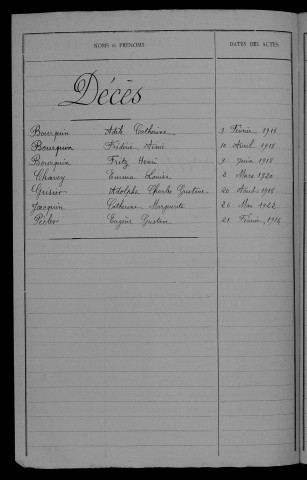 NOMS et PRÉNOMS DATES DES ACTES
Décès
Bourquin Adèle Catherine 3 Février 1918
Bourquin Frédéric Aimé 10 Avril 1918
Bourquin Fritz Henri 9 Juin 1918
Chavey Emma Louise 2 Mars 1920
Grisier Adolphe Charles Gustave 20 Août 1916
Jacquin Catherine Marguerite 26 Mai 1922
Eugène Gustave 21 Février 1914